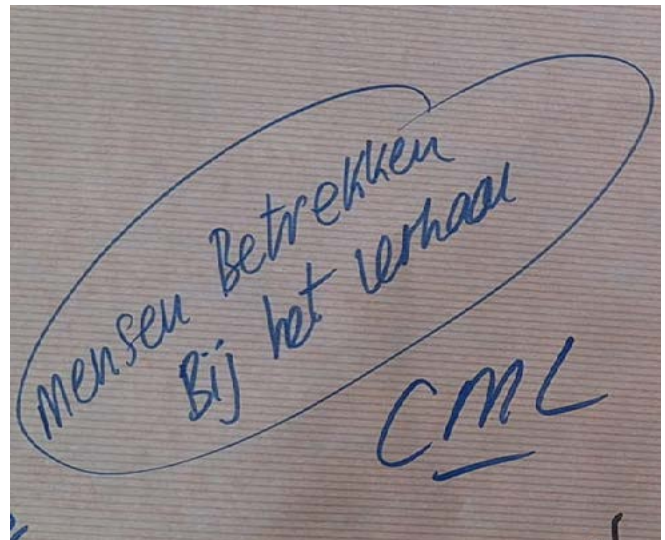 mensen Betrekken
Bij het verhaal
CML